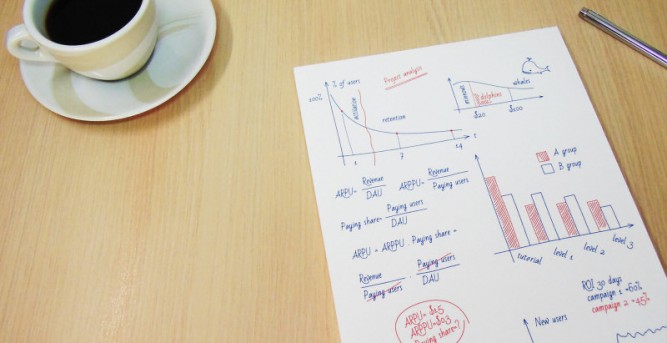 Project analysis
% of users
100%
activation
retention
1
7
14
t
minnows
dolphins
whales
$20
$100
ARPU= Revenue
DAU
ARPPU= Revenue
Paying users
Paying share= Paying users
DAU
ARPU = ARPPU · Paying share =
Revenue
Paying users
· Paying users
DAU
A group
B group
tutorial
level 1
level 2
level 3
ROI 30 days
campaign 1
campaign 2
New users
ARPU=
ARPPU=
Paying share=?